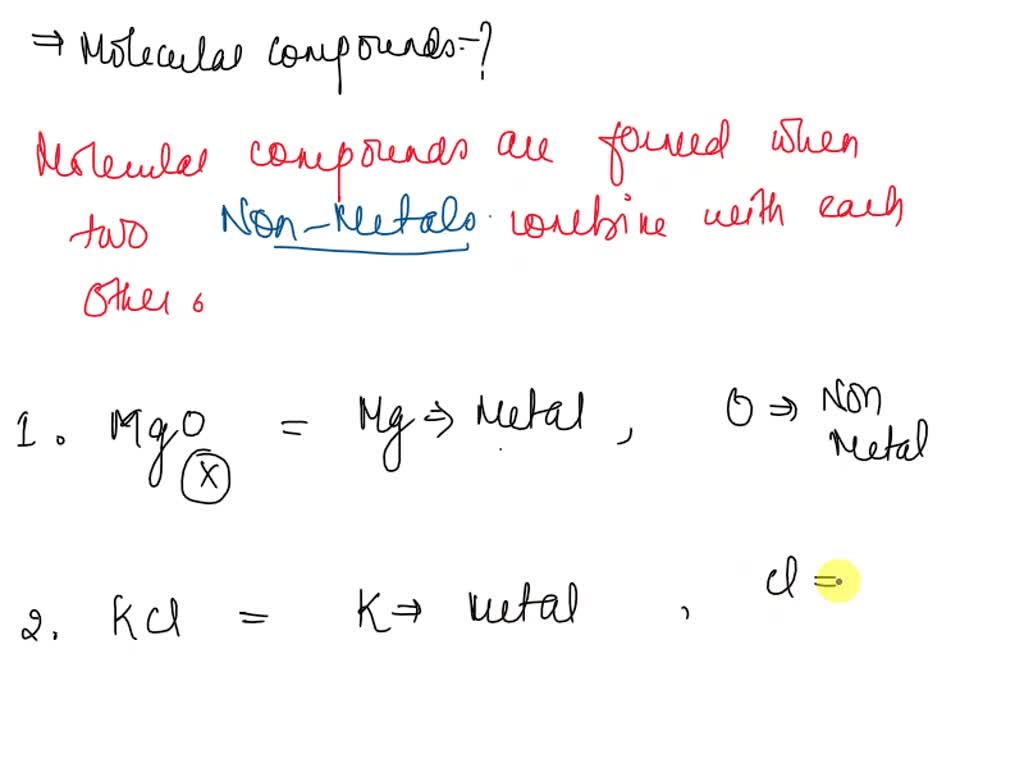 ⇒ Molecular compounds:-?
Molecular compounds are formed when
two Non-Metals combine with each
other.
1. MgO = Mg ⇒ Metal, O ⇒ Non
Metal
X
2. KCl = K ⇒ Metal, Cl =